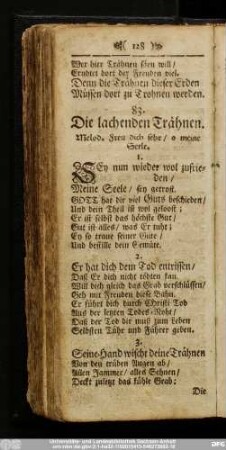 ( 128 )
Wer hier Trähnen säen will /
Erndtet dort der Freuden viel.
Denn die Trähnen dieser Erden
Müssen dort zu Trohnen werden.
83.
Die lachenden Trähnen.
Melod. Freu dich sehr / o meine
Seele.
1.
SEy nun wieder wol zufrie-
den /
Meine Seele / sey getrost.
GOTT hat dir viel Guts bescheiden /
Und dein Theil ist wol geloost ;
Er ist selbst das höchste Gut /
Gut ist alles / was Er tuht ;
Ey so traue seiner Güte /
Und bestille dein Gemüte.
2.
Er hat dich dem Tod entrissen /
Daß Er dich nicht tödten kan.
Will dich gleich das Grab verschlüssen /
Geh mit Freuden diese Bahn.
Er führt dich durch Christi Tod
Aus der letzten Todes-Noht /
Daß der Tod dir muß zum Leben
Selbsten Tühr und Führer geben.
3.
Seine Hand wischt deine Trähnen
Von den trüben Augen ab /
Allen Jammer / alles Sehnen /
Deckt zuletzt das kühle Grab :
Die
Universitäts- und Landesbibliothek Sachsen-Anhalt